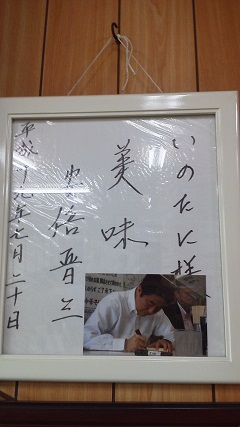 いのたに様
美味
安倍晋三
平成 九年 月二十日